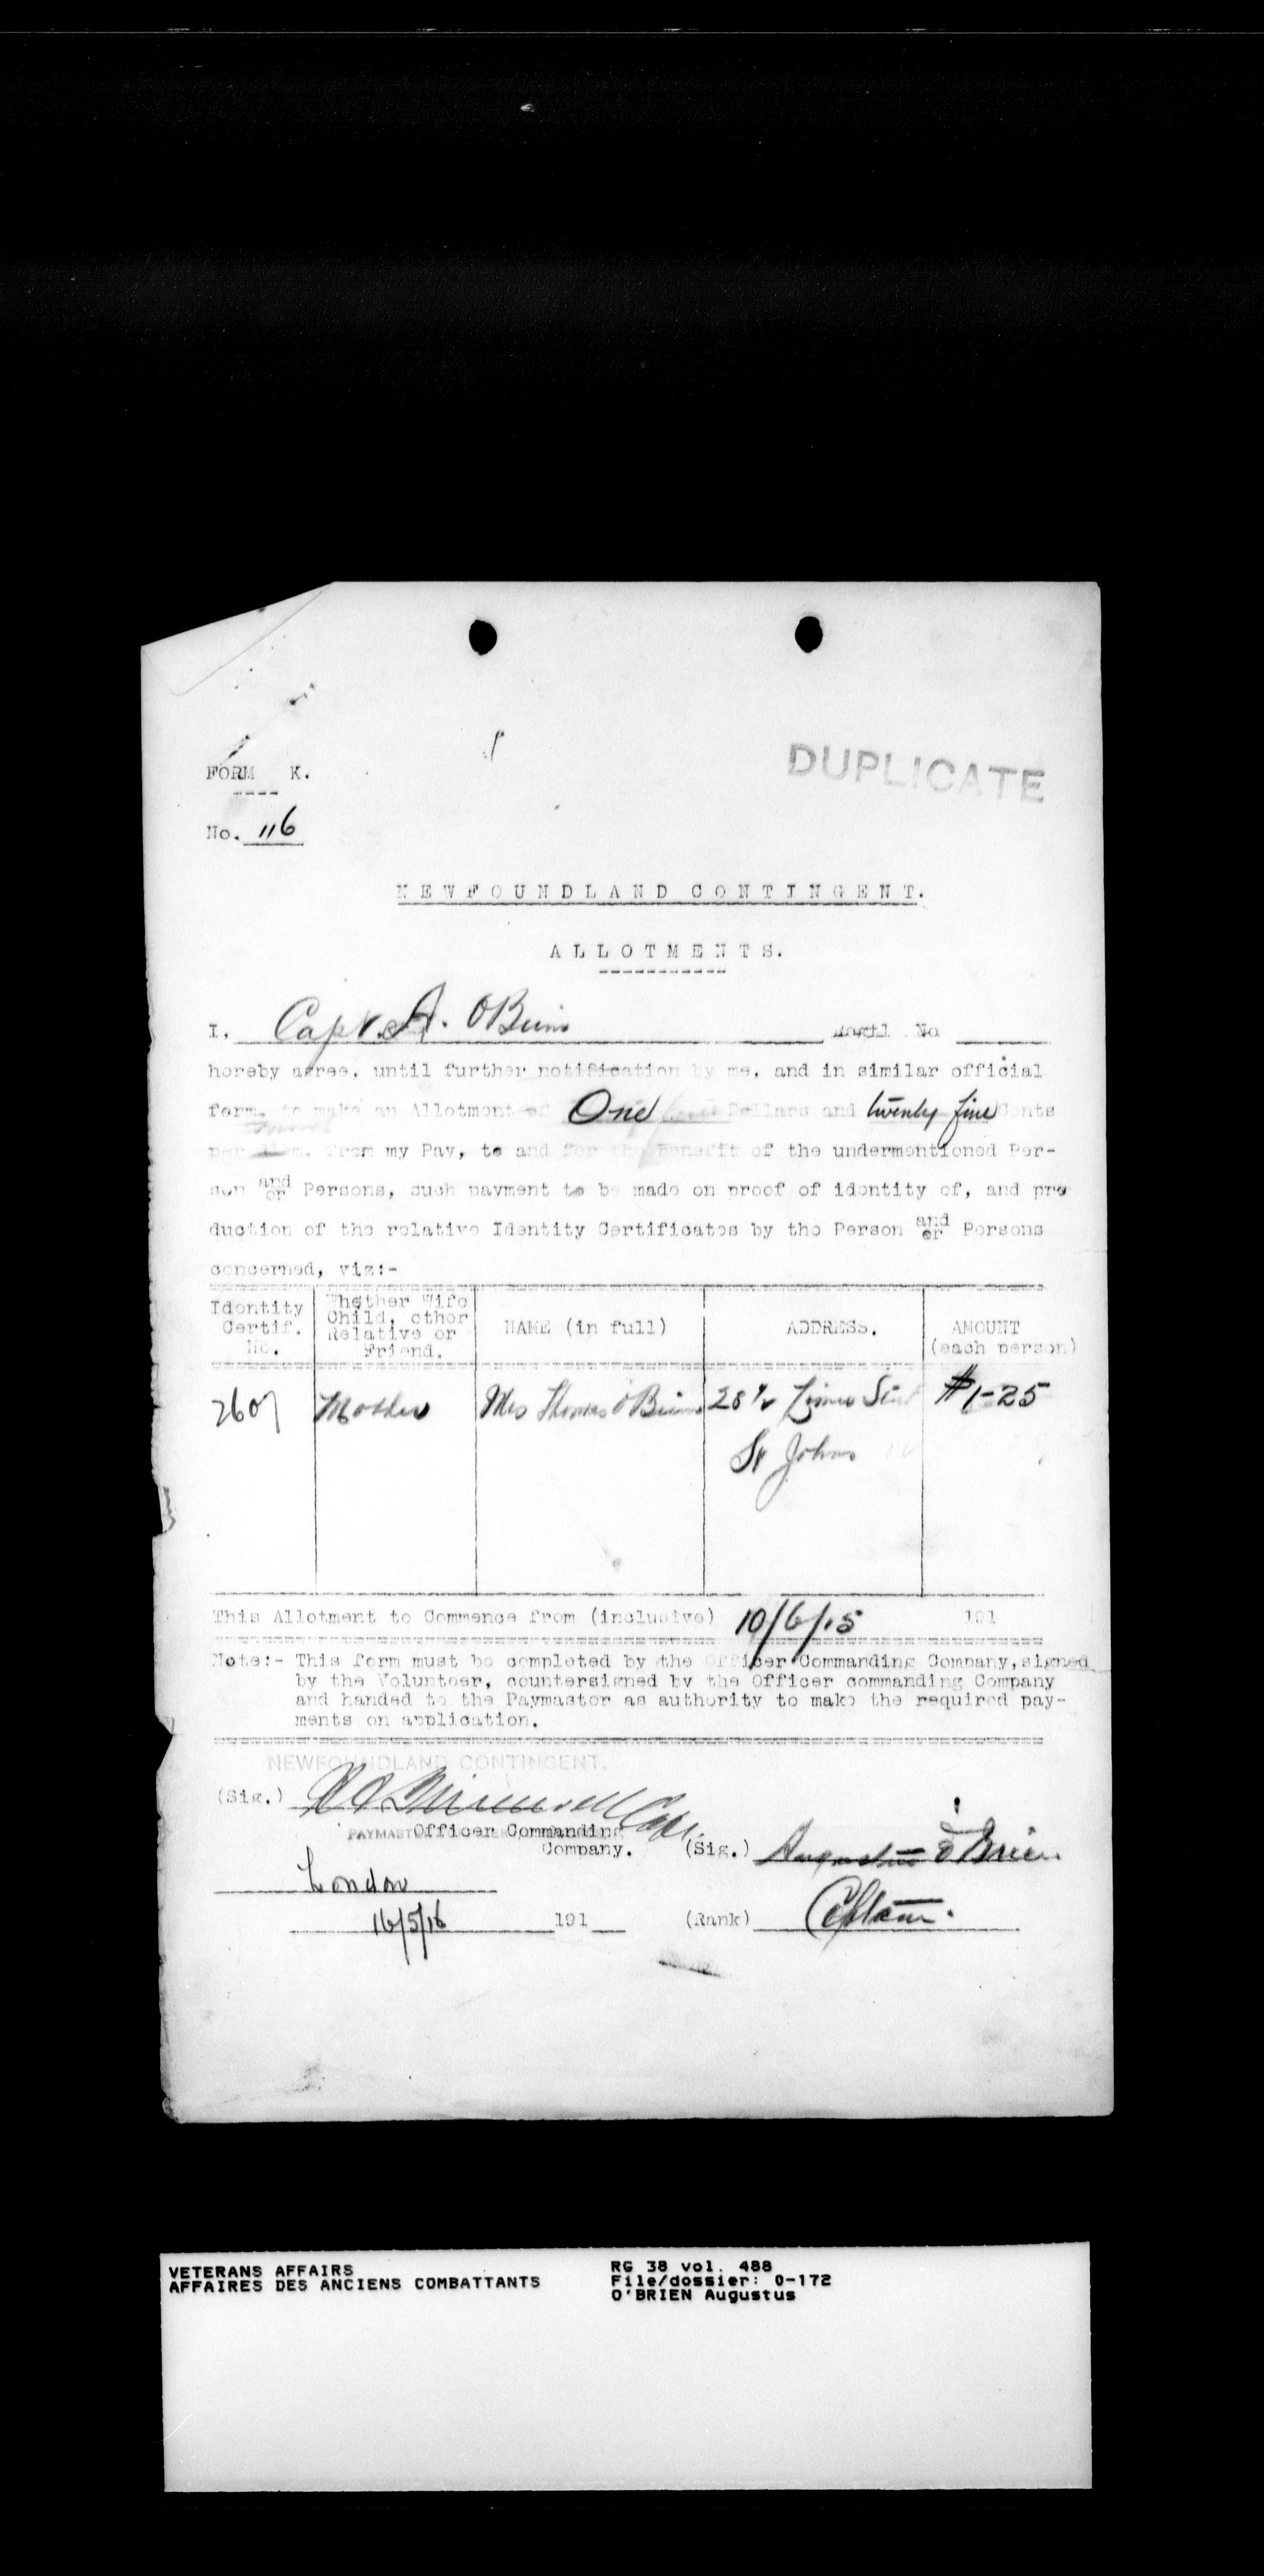 DUPLICATE
FORM K.
No. 116
NEWFOUNDLAND CONTINGENT.
ALLOTMENTS.
I, Capt. A. O'Brien Regtl No
hereby agree, until further notification by me, and in similar official
form, to make an Allotment of One Dollars and twenty five Cents
per diem, from my Pay, to and for the Benefit of the undermentioned Per-
son and or Persons, such payment to be made on proof of identity of, and pro
duction of the relative Identity Certificates by the Person and or Persons
concerned, viz:-
Identity Certif. No.
Whether Wife Child, other Relative or Friend.
NAME (in full)
ADDRESS.
AMOUNT (each person)
2607 Mother Mrs Thomas O'Brien 28½ Street $1-25
St Johns
This Allotment to Commence from (inclusive) 10/6/15 191
Note:- This form must be completed by the Officer Commanding Company, signed
by the Volunteer, countersigned by the Officer commanding Company
and handed to the Paymaster as authority to make the required pay-
ments on application.
NEWFOUNDLAND CONTINGENT.
(Sig.) Capt.
PAYMASTER
Officer Commanding
Company.
(Sig.) Augustus O'Brien
London
16/5/16 191
(Rank) Captain.
VETERANS AFFAIRS
AFFAIRES DES ANCIENS COMBATTANTS
RG 38 vol. 488
File/dossier: O-172
O'BRIEN Augustus